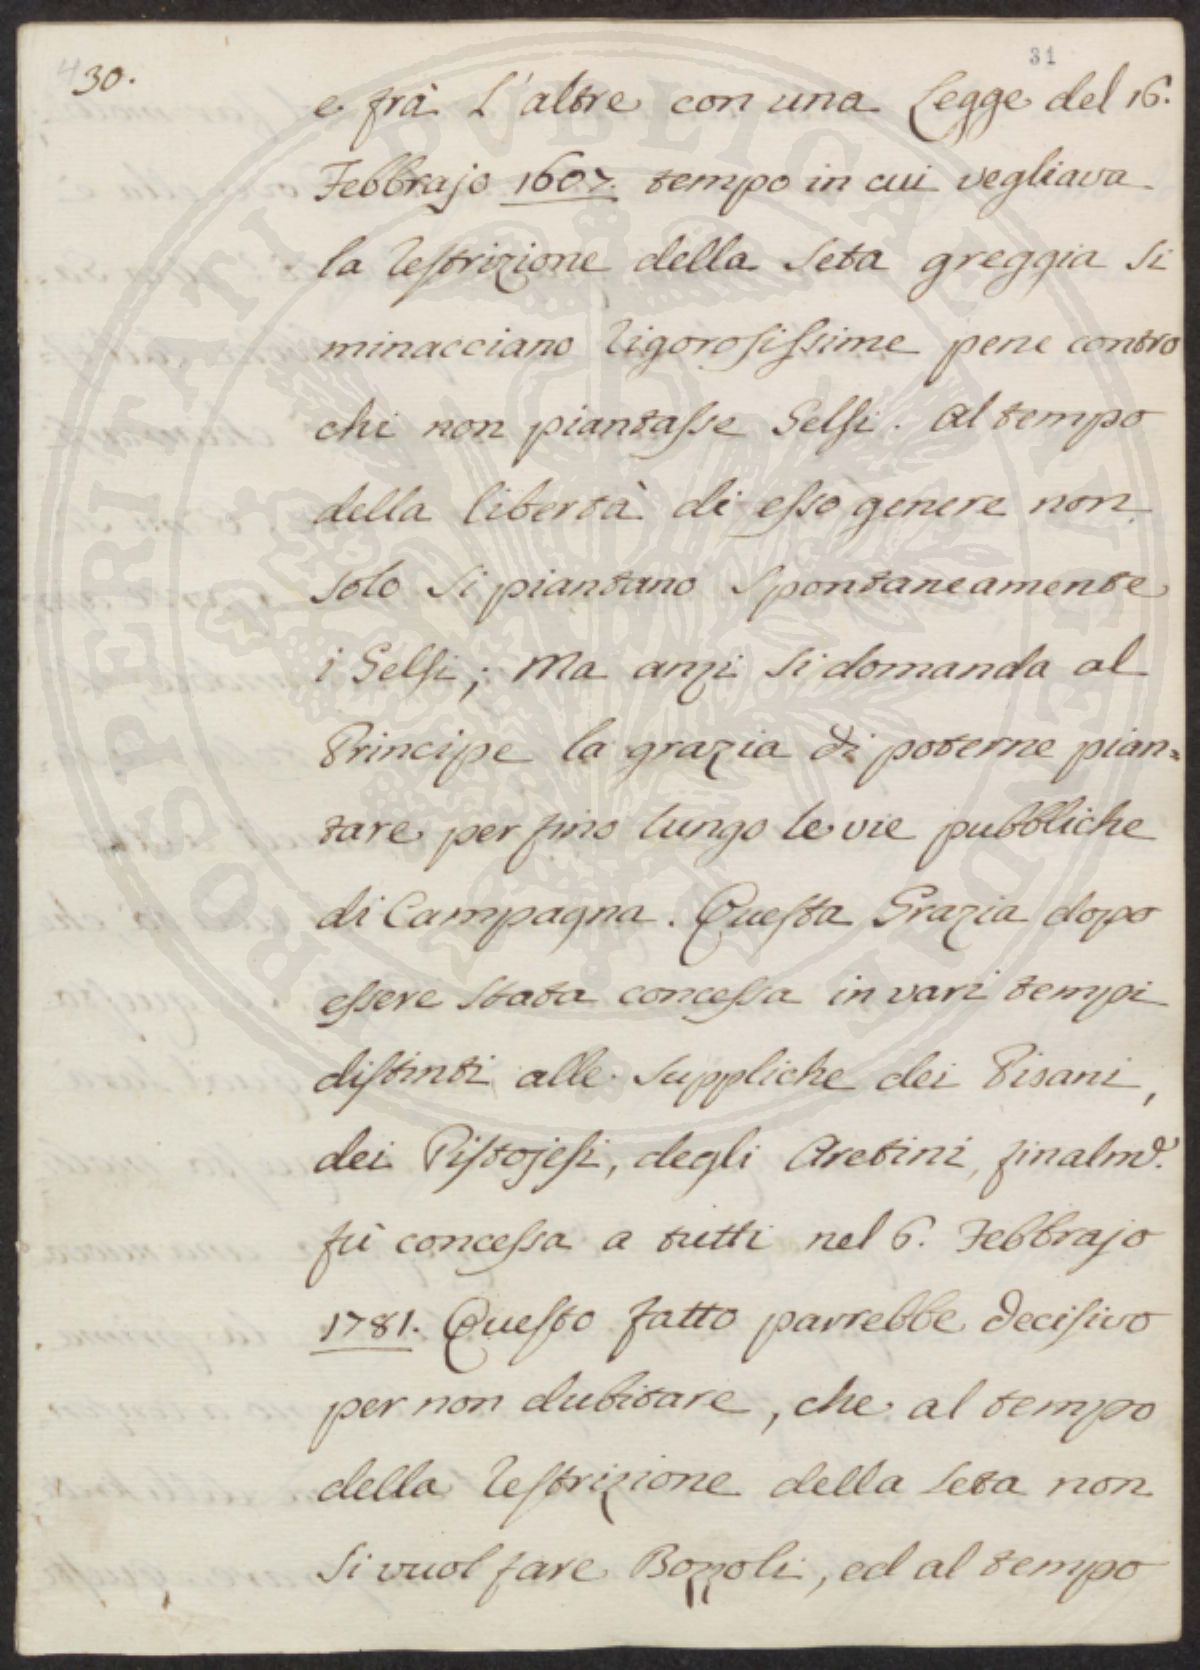 30.
31
e frà L'altre con una Legge del 16.
Febbrajo 1607. tempo in cui vegliava
la restrizione della Seta greggia si
minacciano rigorosissime pene contro
chi non piantasse Gelsi. Al tempo
della libertà di esso genere non
solo si piantano spontaneamente
i Gelsi; Ma anzi si domanda al
Principe la grazia di poterne pian=
tare per fino lungo le vie pubbliche
di Campagna. Questa Grazia dopo
essere stata concessa in vari tempi
distinti alle suppliche dei Pisani,
dei Pistojesi, degli Aretini, finalm.e
fù concessa a tutti nel 6. Febbrajo
1781. Questo fatto parrebbe decisivo
per non dubitare, che al tempo
della restrizione della Seta non
si vuol fare Bozzoli, ed al tempo
PROSPERITATI PUBLICAE AUGENDAE